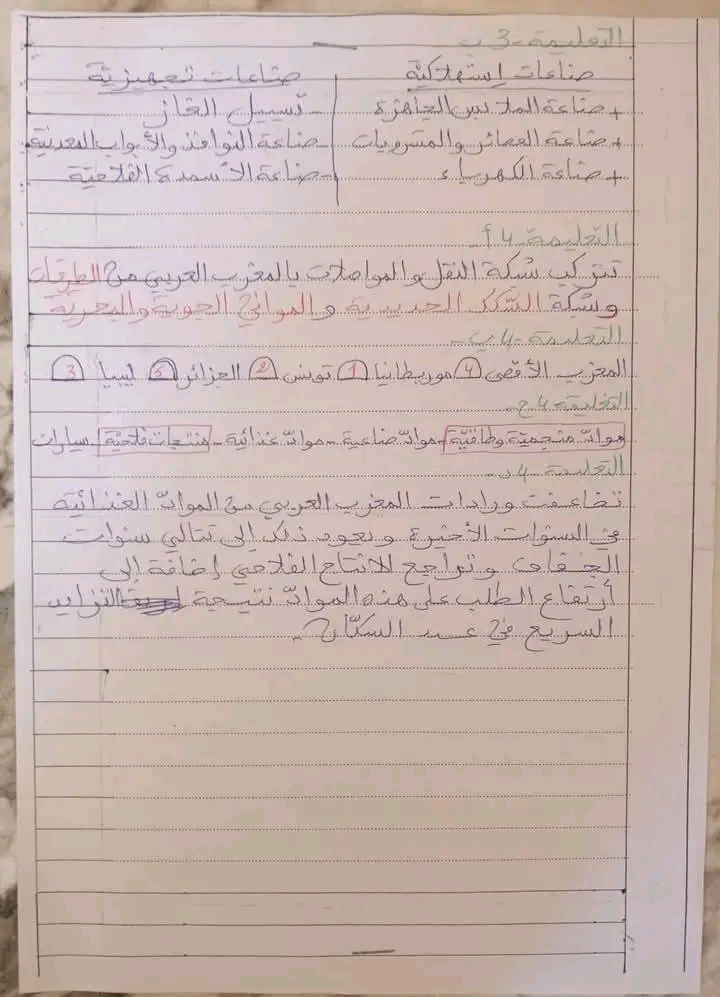 التعليمة -3 ب
صناعات إستهلاكية | صناعات تجهيزية
+ صناعة الملابس الجاهزة | - تسييل الغاز
+ صناعة العصائر والمشروبات | - صناعة النوافذ والأبواب المعدنية
+ صناعة الكهرباء | - صناعة الأسمدة الفلاحية
التعليمة -4 أ-
تتركب شبكة النقل والمواصلات بالمغرب العربي من الطرقات
وشبكة السّكك الحديدية والموانئ الجوية والبحرية
التعليمة -4 ب-
المغرب الأقصى 4 موريطانيا 1 تونس 2 الجزائر 5 ليبيا 3
التعليمة -4 ج-
موادّ منجمية وطاقيّة - موادّ صناعية - موادّ غذائية - منتجات فلاحيّة - سيارات
التعليمة -4 د-
تضاعفت ورادات المغرب العربي من الموادّ الغذائية
في السنوات الأخيرة ويعود ذلك إلى تتالي سنوات
الجفاف وتراجع للانتاج الفلاحي إضافة إلى
أرتفاع الطلب على هذه الموادّ نتيجة التزايد
السريع في عدد السكّان.